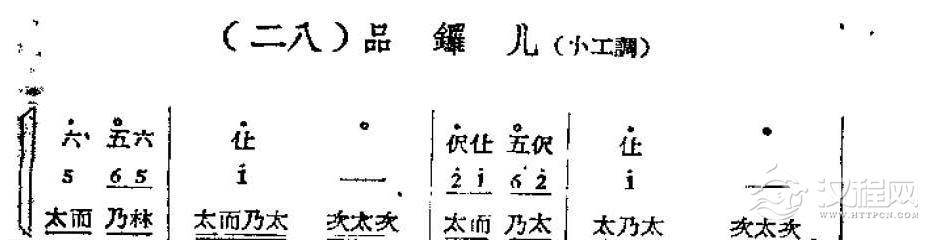 （二八）品 鑼 儿（小工調）
六 五六 | 仩 | 伬仩 五伬 | 仩
5 6 5 | i — | 2 i 6 2 | i —
太而 乃㭝 | 太而乃太 次太次 | 太而 乃太 | 太乃太 次太次
汉程网
WWW.HTTPCN.COM